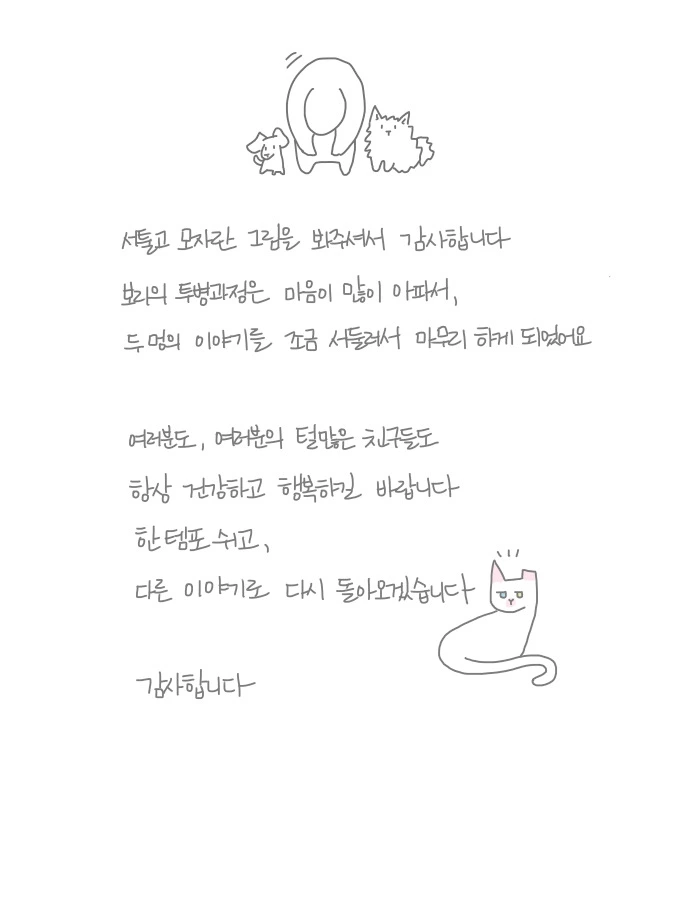 서툴고 모자란 그림을 봐주셔서 감사합니다
보리의 투병과정은 마음이 많이 아파서,
두 멍의 이야기를 조금 서둘러서 마무리 하게 되었어요
여러분도, 여러분의 털많은 친구들도
항상 건강하고 행복하길 바랍니다
한 템포 쉬고,
다른 이야기로 다시 돌아오겠습니다
감사합니다